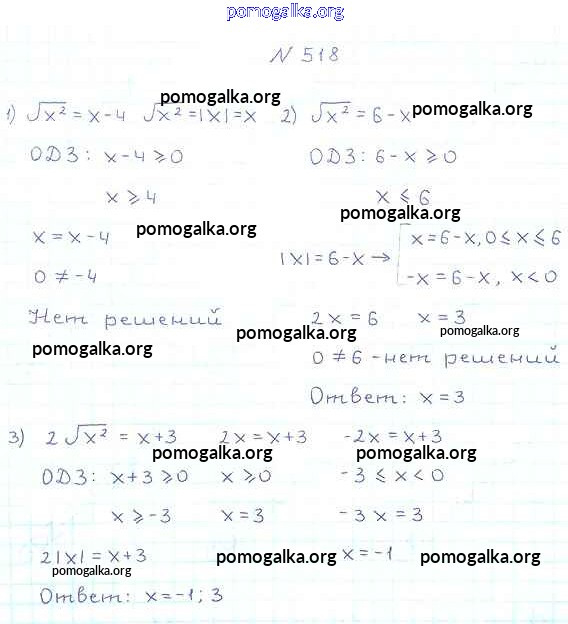 pomogalka.org
N 518
pomogalka.org
1) √x² = x - 4 √x² = |x| = x 2) √x² = 6 - x pomogalka.org
ОДЗ: x - 4 ⩾ 0 ОДЗ: 6 - x ⩾ 0
x ⩾ 4 x ⩽ 6
pomogalka.org
x = x - 4 pomogalka.org x = 6 - x, 0 ⩽ x ⩽ 6
|x| = 6 - x →
0 ≠ -4 -x = 6 - x, x < 0
Нет решений 2x = 6 x = 3
pomogalka.org pomogalka.org
pomogalka.org 0 ≠ 6 - нет решений
Ответ: x = 3
3) 2√x² = x + 3 2x = x + 3 -2x = x + 3
pomogalka.org pomogalka.org
ОДЗ: x + 3 ⩾ 0 x ⩾ 0 -3 ⩽ x < 0
x ⩾ -3 x = 3 -3x = 3
2|x| = x + 3 pomogalka.org x = -1 pomogalka.org
pomogalka.org
Ответ: x = -1; 3